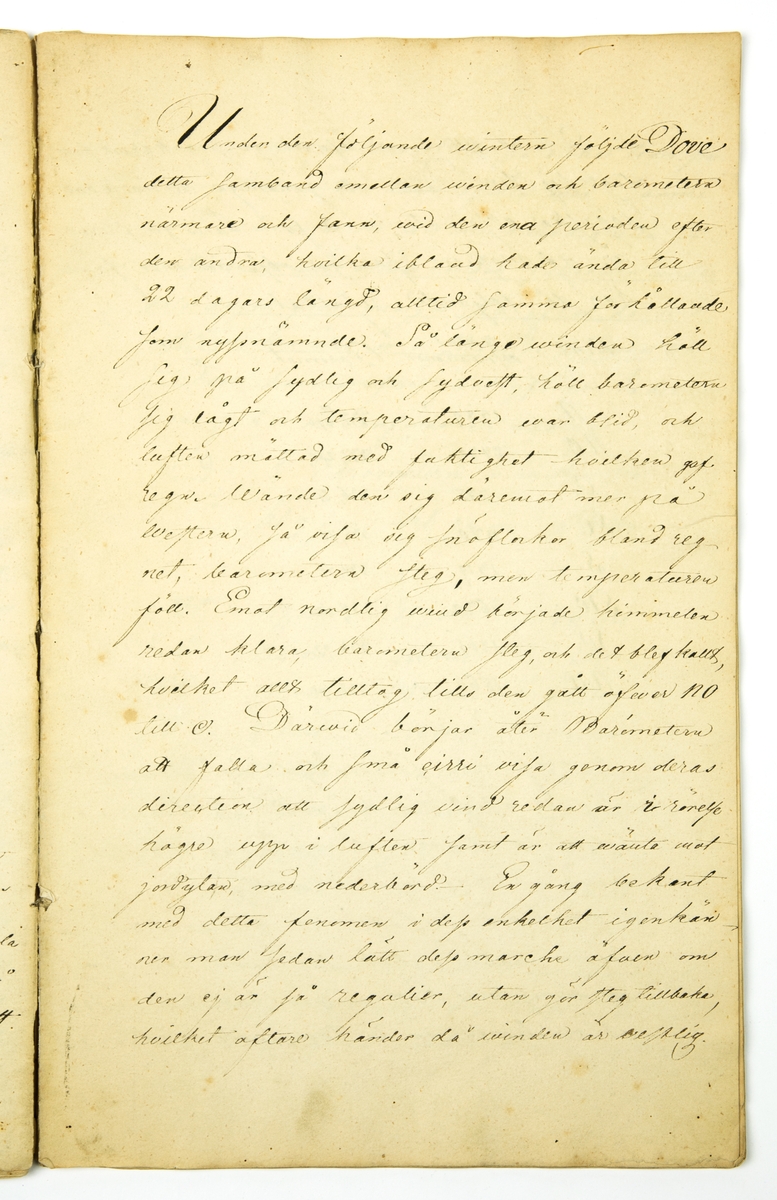 Under den följande wintern följde Dove
detta samband emellan winden och barometern
närmare och fann, wid den ena perioden efter
den andra, hvilka ibland hade ända till
22 dagars längd, alltid samma förhållande
som nyssnämnde. Så länge winden höll
sig på sydlig och sydvest, höll barometern
sig lågt och temperaturen war blid, och
luften mättad med fuktighet hvilken gaf
regn. Wände den sig däremot mer på
Western, så visa sig snöflockor bland reg
net, barometern steg, men temperaturen
föll. Emot nordlig wind började himmelen
redan klara, barometern steg, och det blef kallt,
hvilket allt tilltog tills den gått öfwer NO
till O. Därwid börjar åter Barometern
att falla och små cirri visa genom deras
direction att sydlig vind redan är i rörelse
högre upp i luften samt är att wänta mot
jordytan, med nederbörd. En gång bekant
med detta fenomen i dess enkelhet igenkän-
ner man sedan lätt dess marche äfven om
den ej är så regulier, utan gör steg tillbaka,
hvilket oftare händer då winden är vestlig.
la
å
tt.